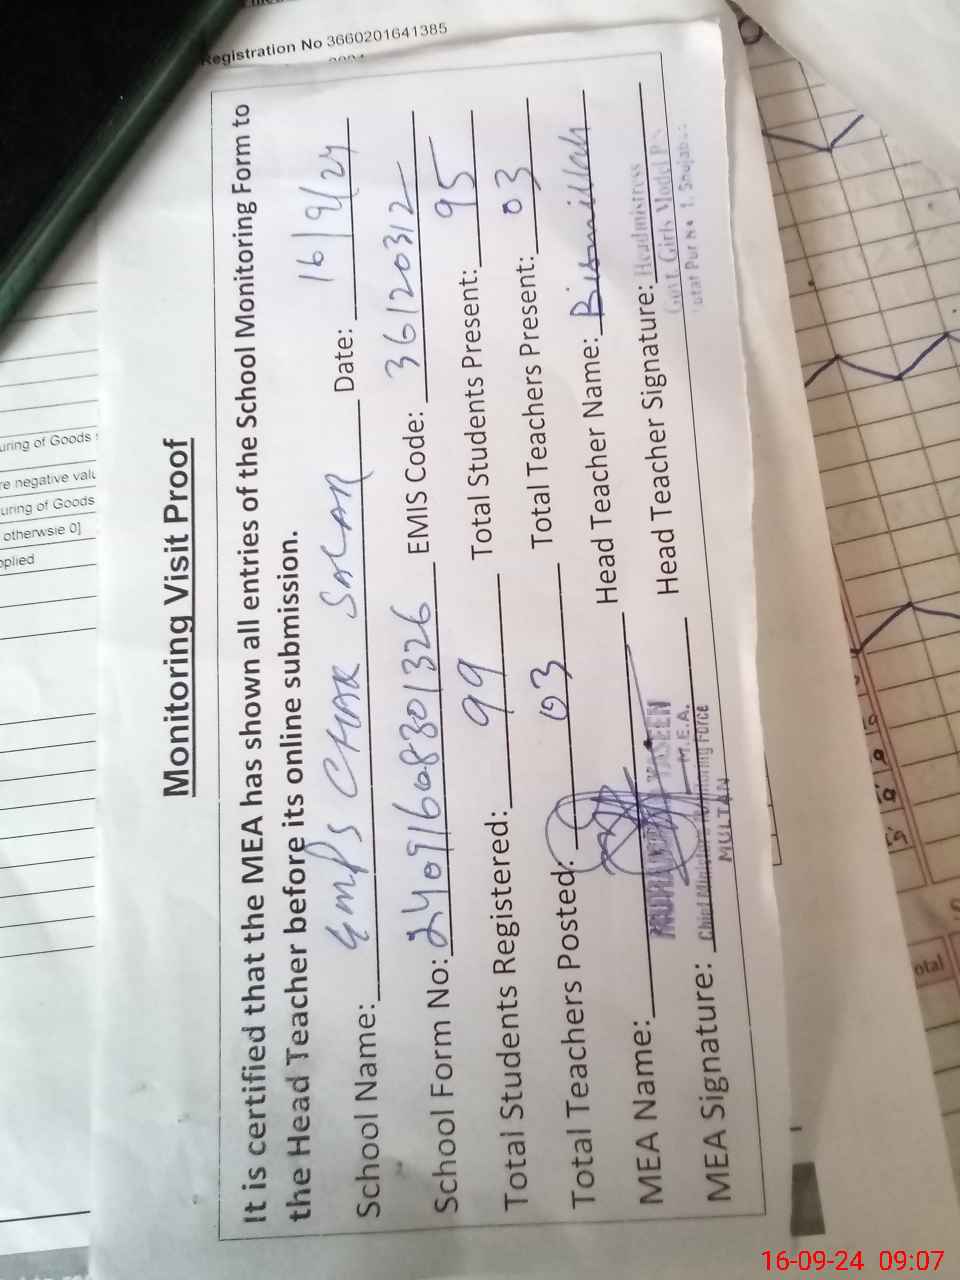 Registration No 3660201641385
Monitoring Visit Proof
It is certified that the MEA has shown all entries of the School Monitoring Form to
the Head Teacher before its online submission.
School Name: GMPS CHAK SALAR Date: 16/9/24
School Form No: 240916608301326 EMIS Code: 36120312
Total Students Registered: 99 Total Students Present: 95
Total Teachers Posted: 03 Total Teachers Present: 03
MEA Name: YASEEN Head Teacher Name: Bismillah
M.E.A.
MEA Signature: Head Teacher Signature: Headmistress
Chief Minister Monitoring Force
MULTAN
Govt. Girls Model
1. Shujabad
uring of Goods
re negative valu
uring of Goods
otherwsie 0]
pplied
otal
16-09-24 09:07